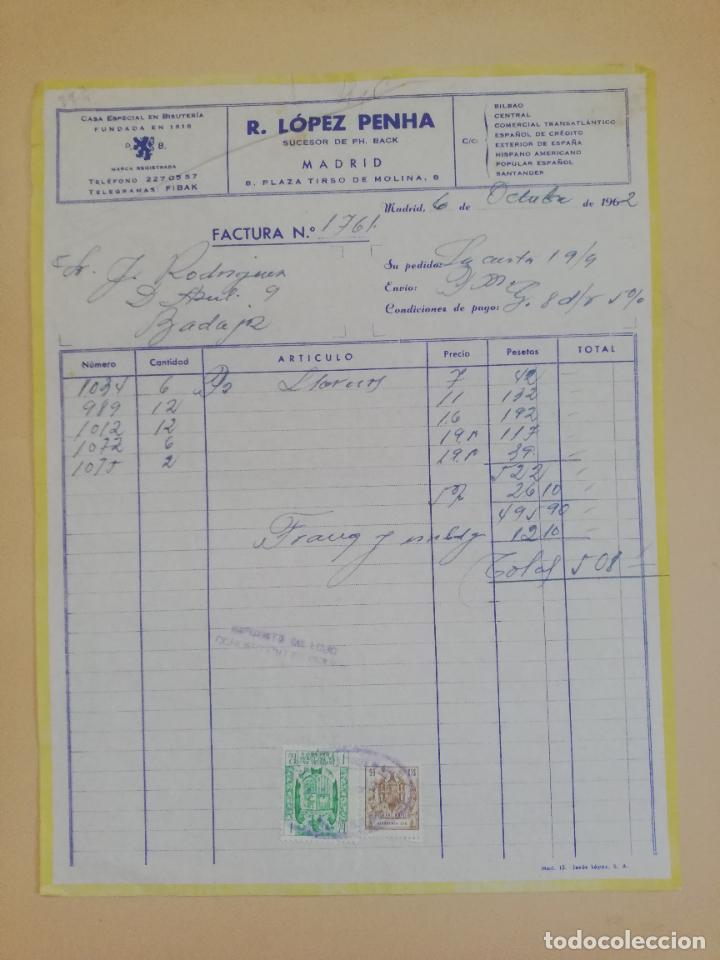 CASA ESPECIAL EN BISUTERÍA
FUNDADA EN 1918
P. B.
MARCA REGISTRADA
TELÉFONO 2270557
TELEGRAMAS: FIBAK
R. LÓPEZ PENHA
SUCESOR DE PH. BACK
MADRID
8, PLAZA TIRSO DE MOLINA, 8
C/C:
BILBAO
CENTRAL
COMERCIAL TRANSATLÁNTICO
ESPAÑOL DE CRÉDITO
EXTERIOR DE ESPAÑA
HISPANO AMERICANO
POPULAR ESPAÑOL
SANTANDER
Madrid, 6 de Octubre de 1962
FACTURA N.º 1761
Sr. J. Rodriguez
9
Badajoz
Su pedido: Su carta 19/9
Envío:
Condiciones de pago: G. 8 d/f 5%
Número Cantidad ARTICULO Precio Pesetas TOTAL
1034 6 Ps 7 42
989 12 11 132
1012 12 16 192
1072 6 19,5 117
1075 2 19,5 39
522
5% 26 10
495 90
Franq y 12 10
Total 508
Mod. 15. Jesús López, S. A.
todocoleccion
todocoleccion.net